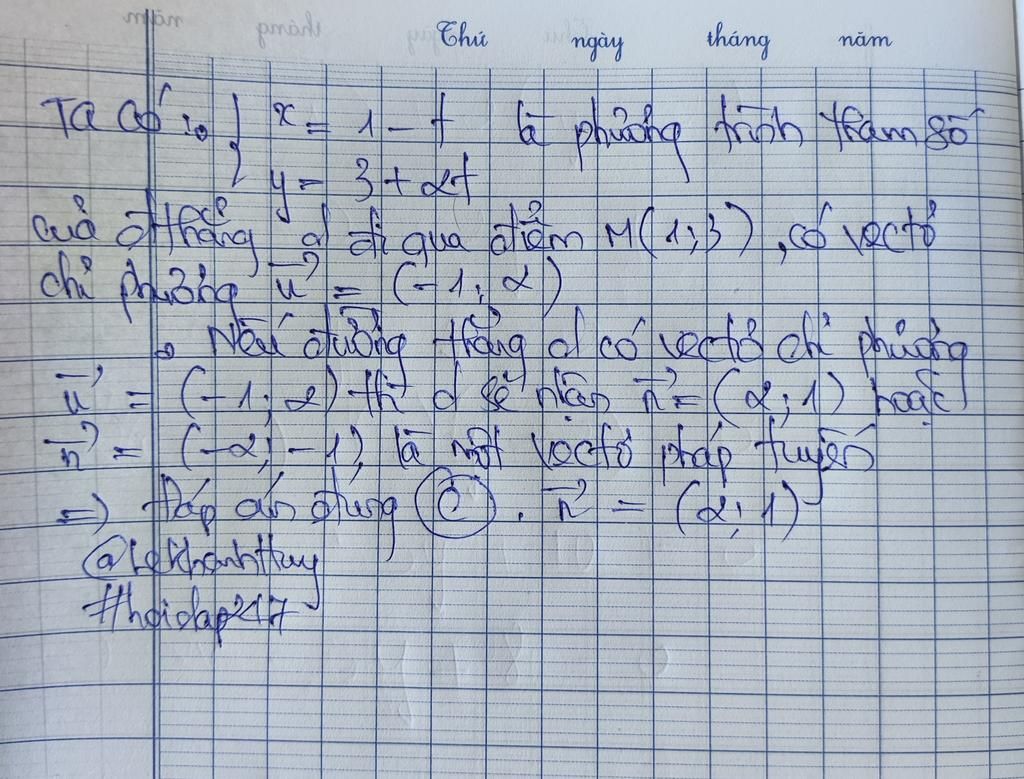 Thứ ngày tháng năm
Ta có: { x = 1 - t là phương trình tham số
y = 3 + 2t
của đthẳng d đi qua điểm M(1;3), có vectơ
chỉ phương u = (-1; 2)
. Nếu đường thẳng d có vectơ chỉ phương
u = (-1; 2) thì d sẽ nhận n = (2; 1) hoặc
n = (-2; -1) là một vectơ pháp tuyến
=> Đáp án đúng C. n = (2; 1)
@lekhanhHuy
#hoidap247